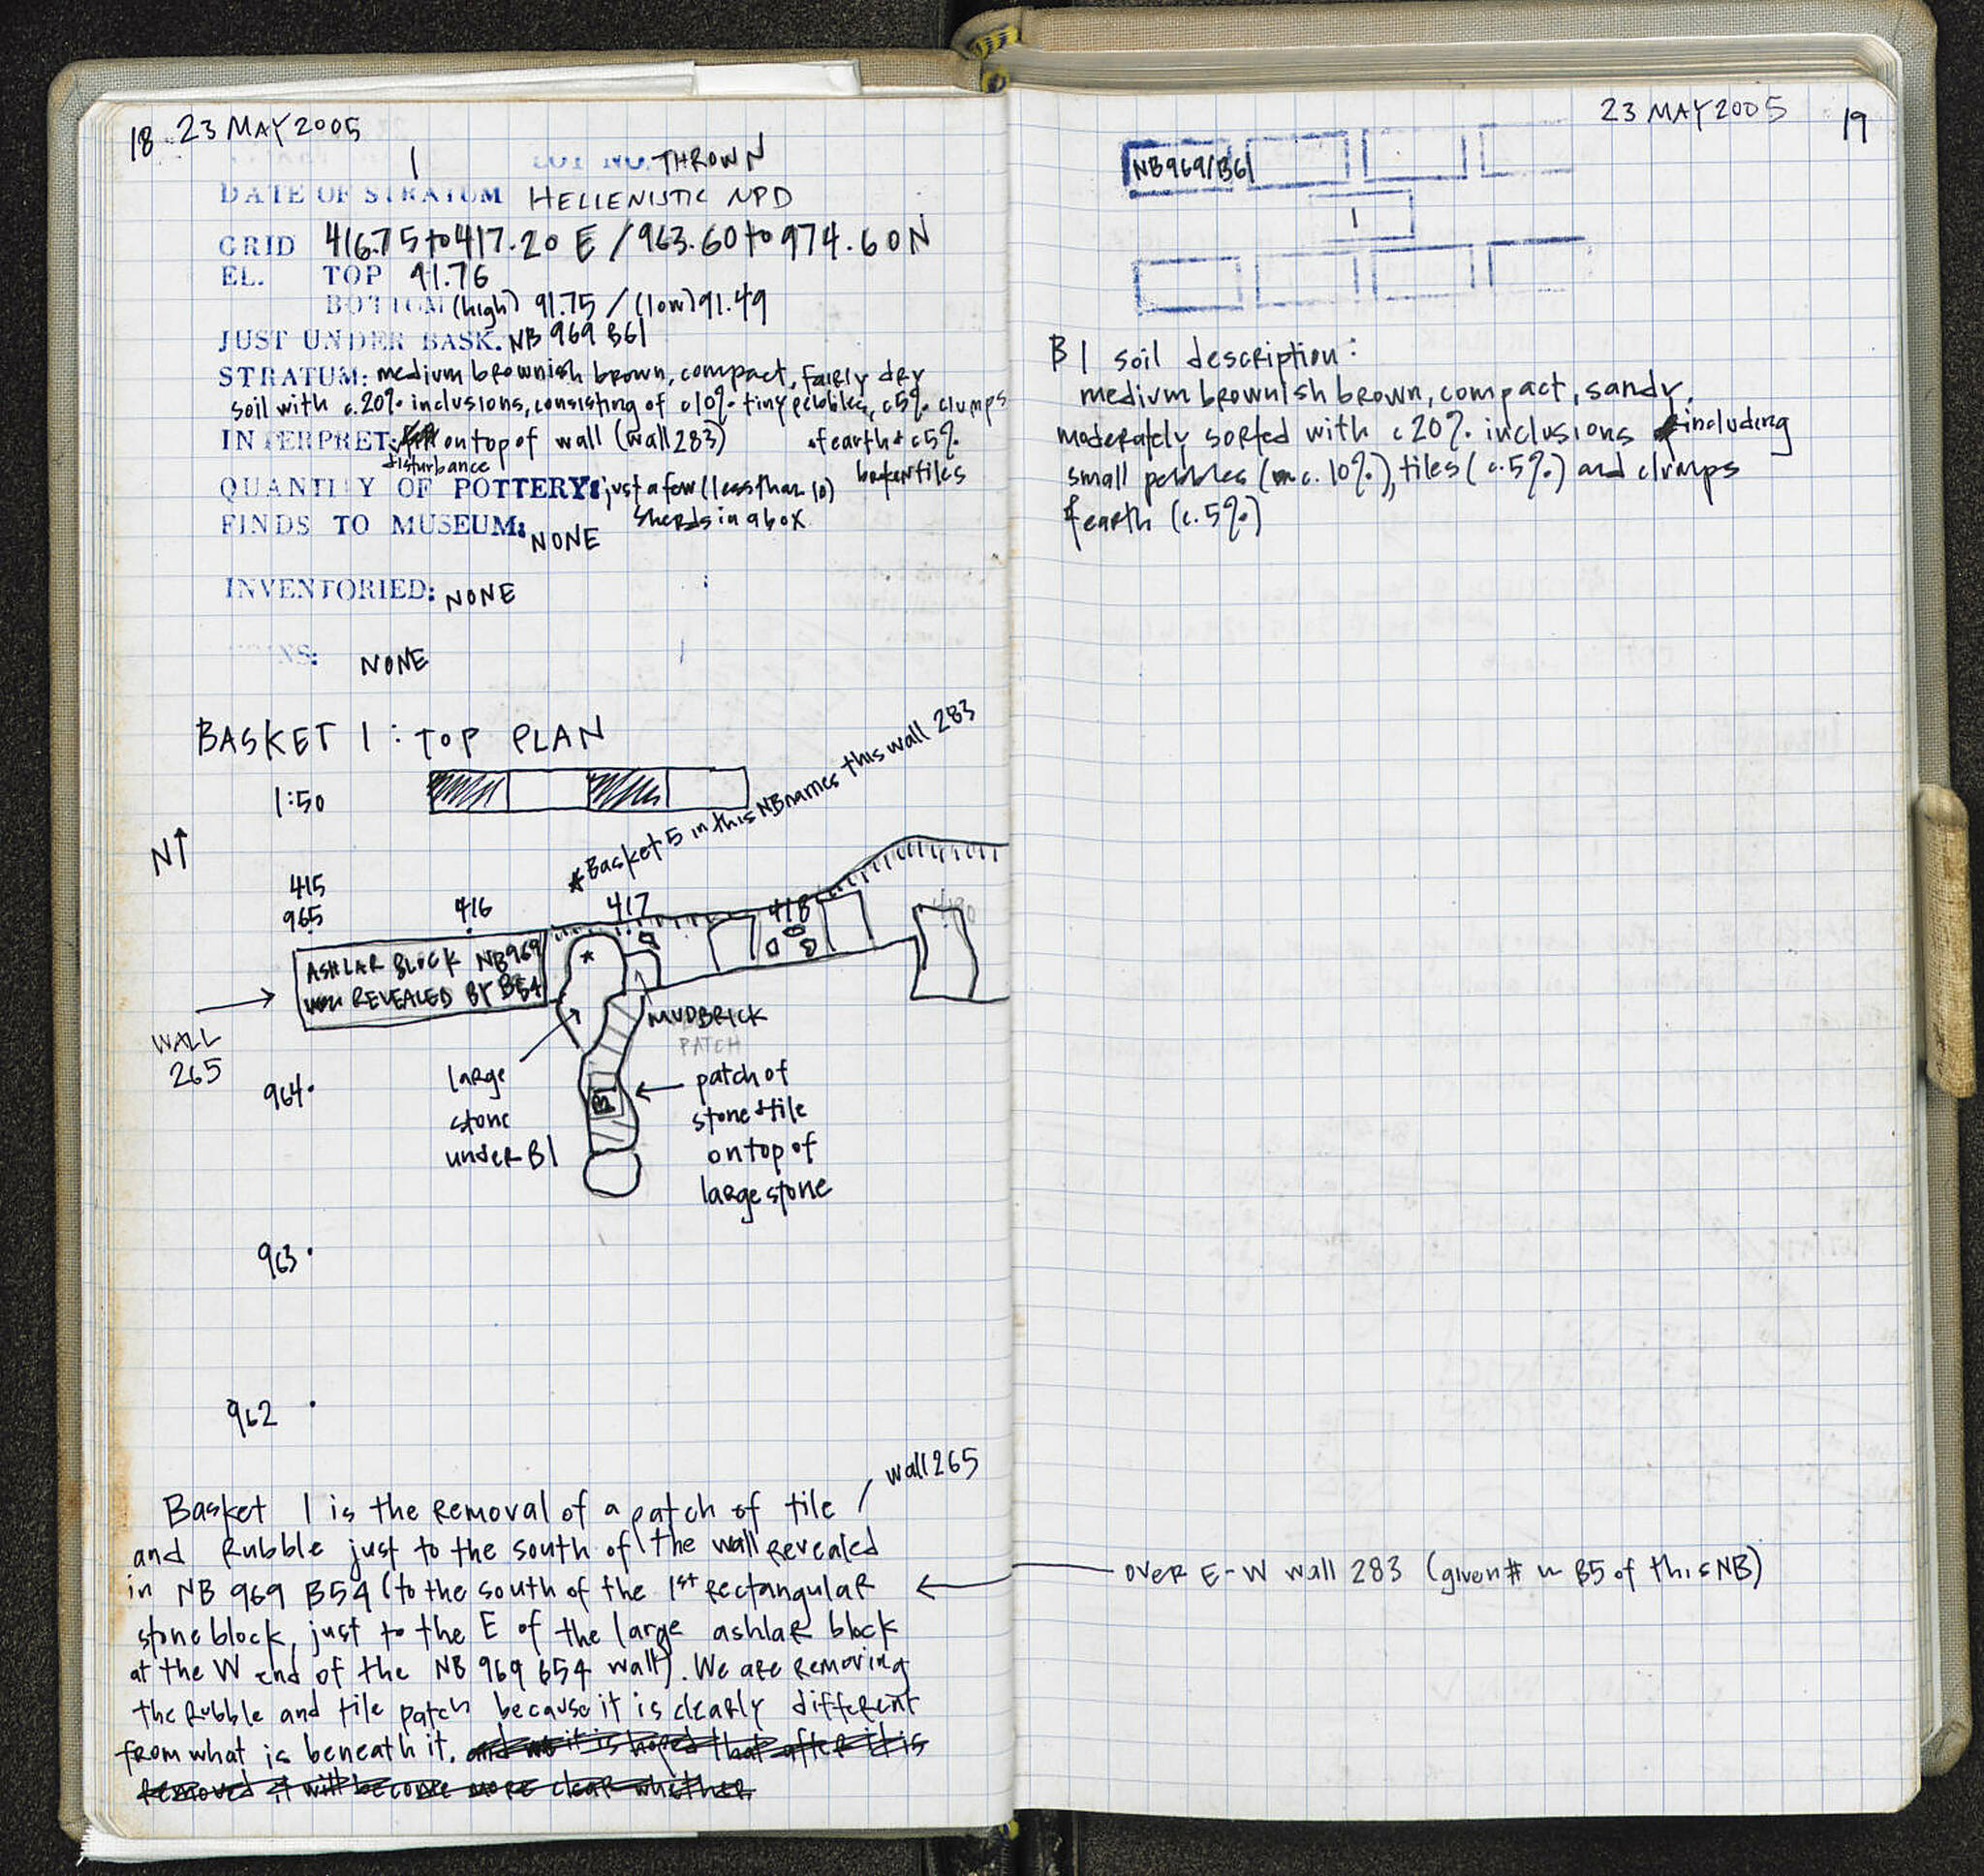 18 23 MAY 2005
1 LOT NO. THROWN
DATE OF STRATUM HELLENISTIC NPD
GRID 416.75 to 417.20 E / 963.60 to 974.60 N
EL. TOP 91.76
BOTTOM (high) 91.75 / (low) 91.49
JUST UNDER BASK. NB 969 B61
STRATUM: medium brownish brown, compact, fairly dry
soil with c.20% inclusions, consisting of c10% tiny pebbles, c5% clumps
of earth & c5%
broken tiles
INTERPRET: on top of wall (wall 283)
disturbance
QUANTITY OF POTTERY: just a few (less than 10)
sherds in a box
FINDS TO MUSEUM: NONE
INVENTORIED: NONE
COINS: NONE
BASKET 1 : TOP PLAN
1:50
N↑
*Basket 5 in this NB names this wall 283
415
965
416
417
418
ASHLAR BLOCK NB969
REVEALED BY B54
*
WALL
265
MUDBRICK
PATCH
964
large
stone
under B1
B1
patch of
stone & tile
on top of
large stone
963
962
wall 265
Basket 1 is the removal of a patch of tile
and rubble just to the south of the wall revealed
in NB 969 B54 (to the south of the 1st rectangular
stone block, just to the E of the large ashlar block
at the W end of the NB 969 B54 wall). We are removing
the rubble and tile patch because it is clearly different
from what is beneath it. it is hoped that after it is
removed it will become more clear whether
23 MAY 2005 19
NB969/B61
1
B1 soil description:
medium brownish brown, compact, sandy,
moderately sorted with c20% inclusions including
small pebbles (c. 10%), tiles (c.5%) and clumps
of earth (c.5%)
over E-W wall 283 (given # in B5 of this NB)